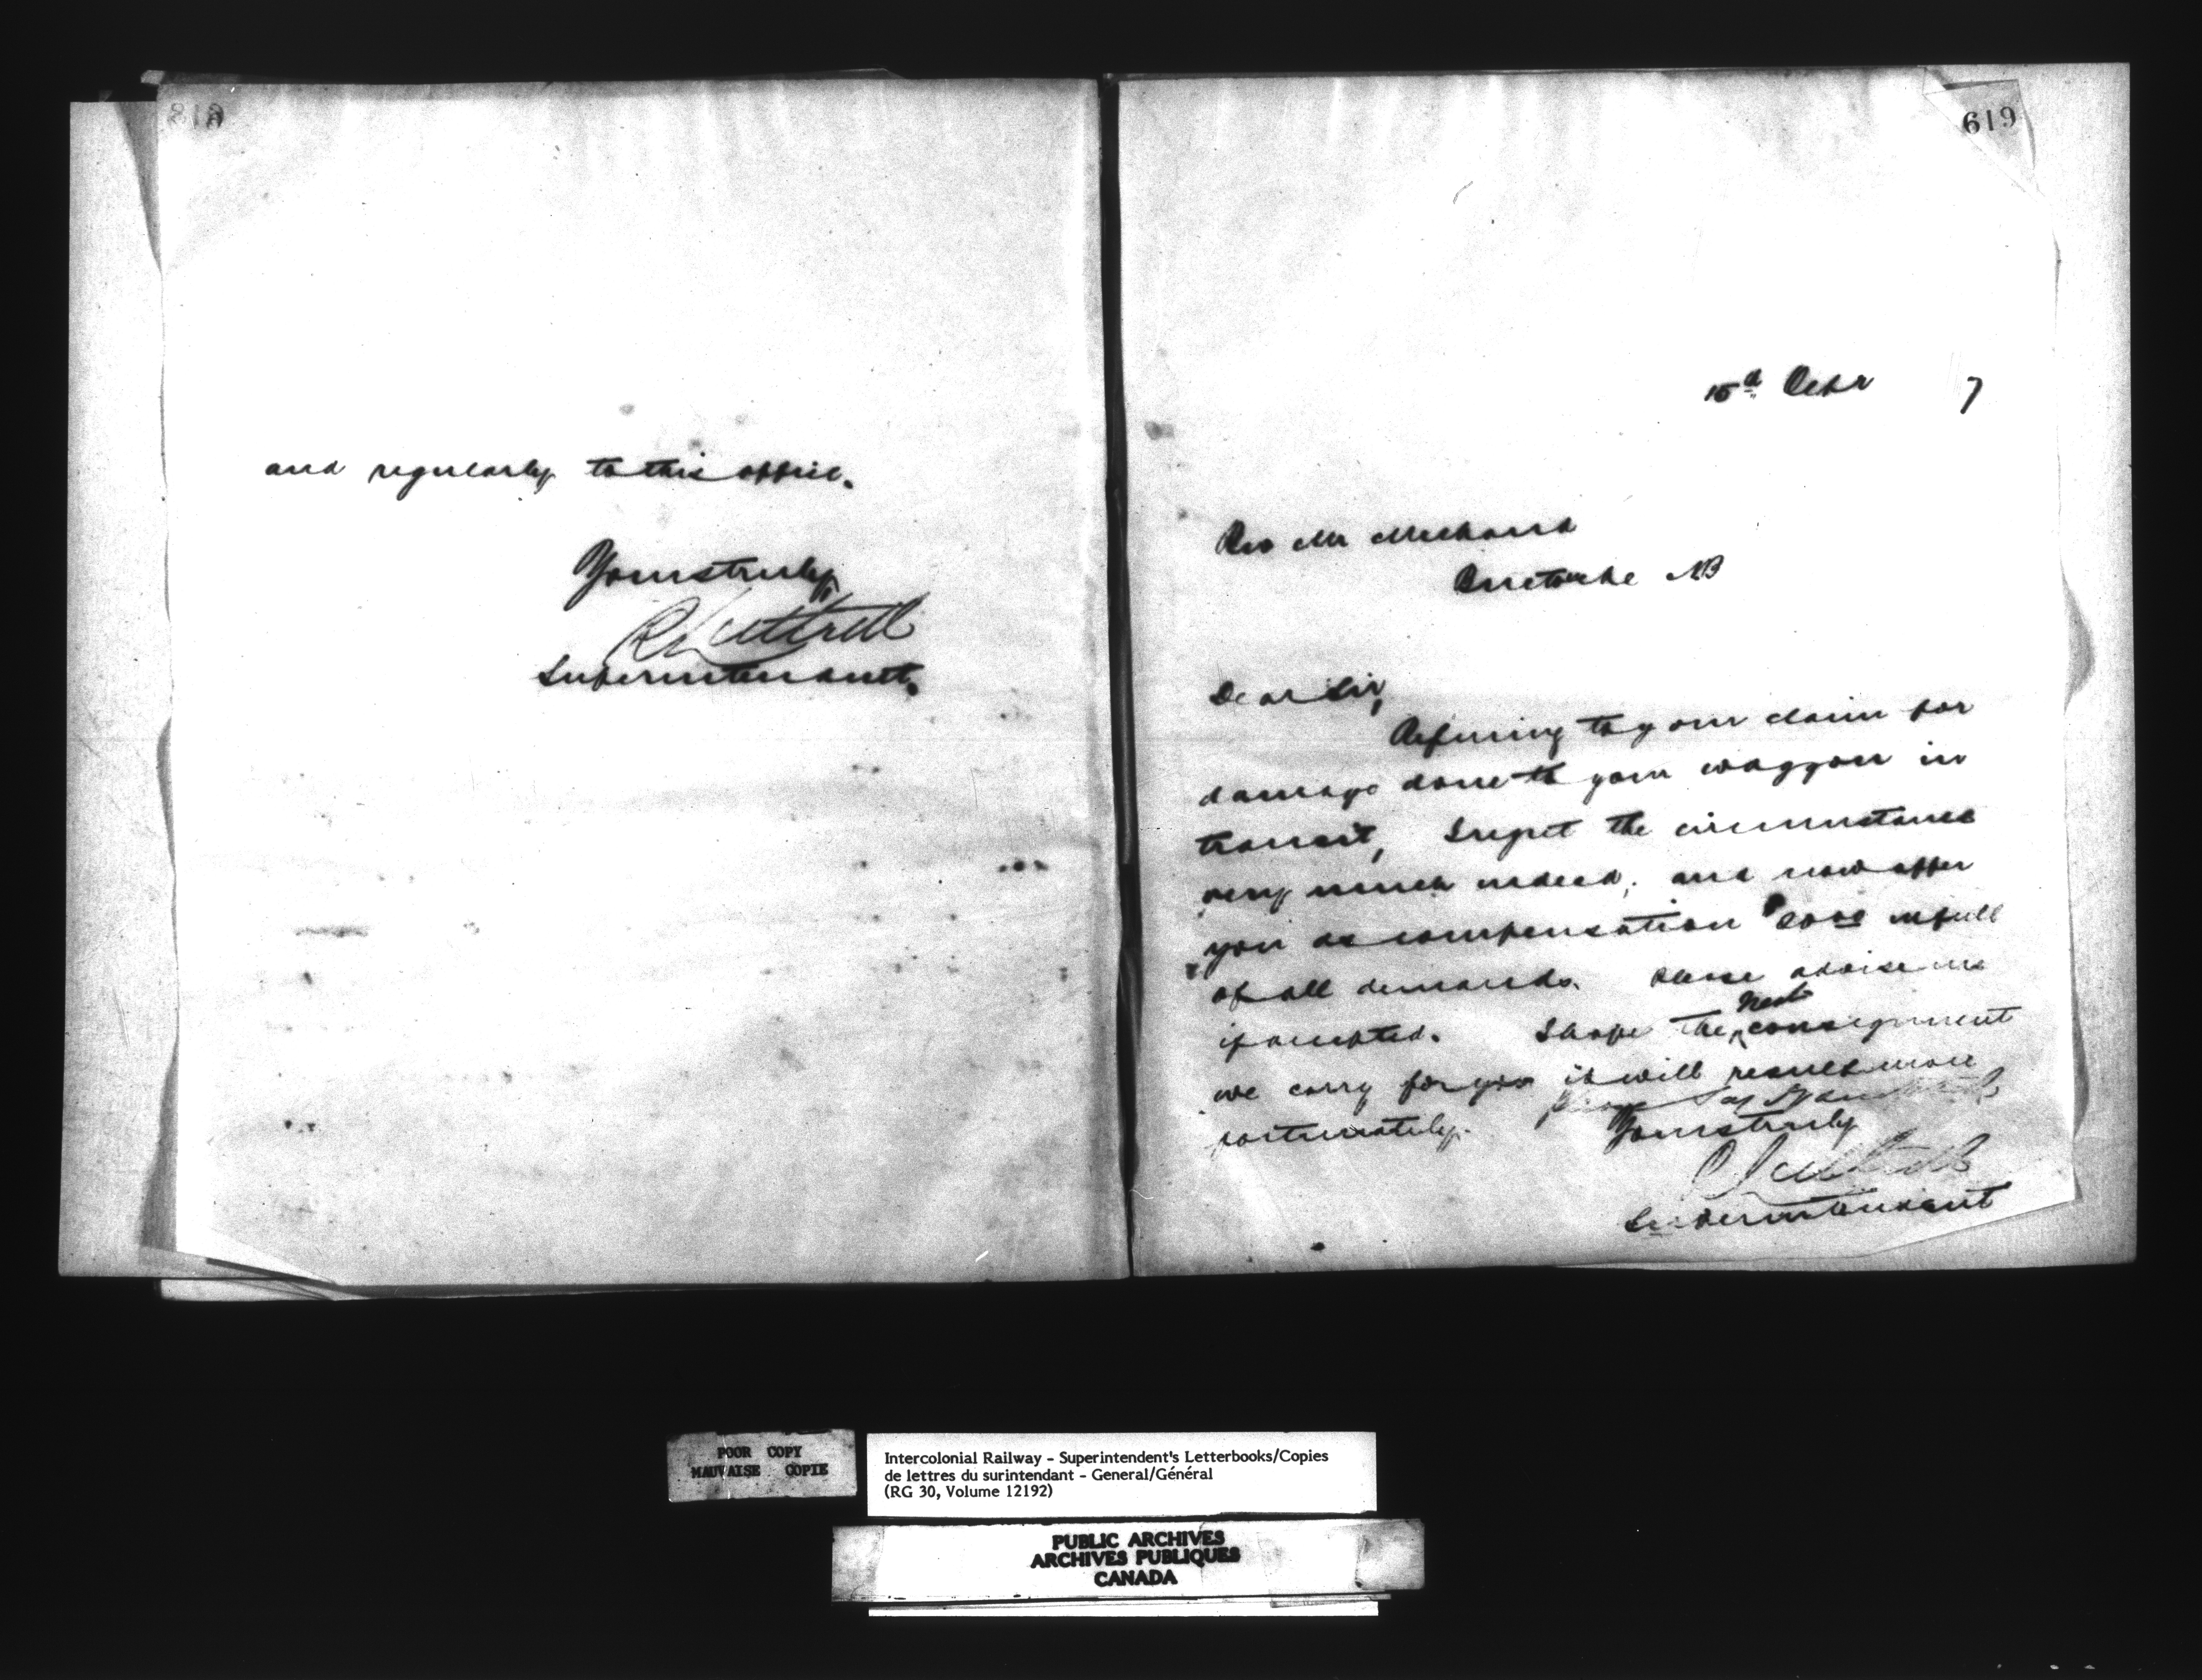 and regularly to this office.
Yours truly
R Luttrell
Superintendent.
619
15th Octr 7
Rev Mr Michaud
Buctouche NB
Dear Sir,
Referring to your claim for
damage done to your waggon in
transit, I regret the circumstance
very much indeed, and now offer
you as compensation in full
of all demands. Please advise me
if accepted. I hope the next consignment
we carry for you it will result more
fortunately.
Yours truly
R Luttrell
Superintendent
POOR COPY
MAUVAISE COPIE
Intercolonial Railway - Superintendent's Letterbooks/Copies
de lettres du surintendant - General/Général
(RG 30, Volume 12192)
PUBLIC ARCHIVES
ARCHIVES PUBLIQUES
CANADA